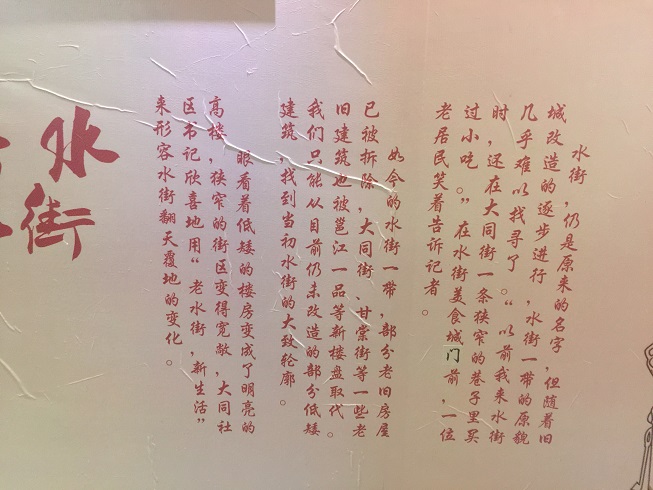 水街，仍是原来的名字，但随着旧
城改造的逐步进行，水街一带的原貌
几乎难以找寻了。“以前我来水街
时，还在大同街一条狭窄的巷子里买
过小吃。”在水街美食城门前，一位
老居民笑着告诉记者。
如今的水街一带，部分老旧房屋
已被拆除，大同街、甘棠街等一些老
旧建筑也被邕江一品等新楼盘取代。
我们只能从目前仍未改造的部分低矮
建筑，找到当初水街的大致轮廓。
眼看着低矮的楼房变成了明亮的
高楼，狭窄的街区变得宽敞，大同社
区书记欣喜地用“老水街，新生活”
来形容水街翻天覆地的变化。
水街